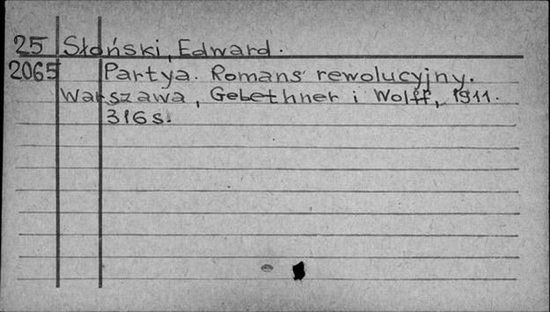 25 Słoński, Edward.
2065 Partya. Romans rewolucyjny.
Warszawa, Gebethner i Wolff, 1911.
316 s.